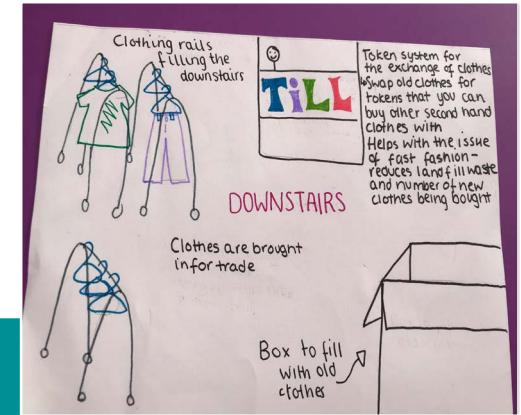 Clothing rails
filling the
downstairs
TiLL
Token system for
the exchange of clothes
↳Swap old clothes for
tokens that you can
buy other second hand
clothes with
Helps with the issue
of fast fashion-
reduces landfill waste
and number of new
clothes being bought
DOWNSTAIRS
Clothes are brought
in for trade
Box to fill
with old
clothes